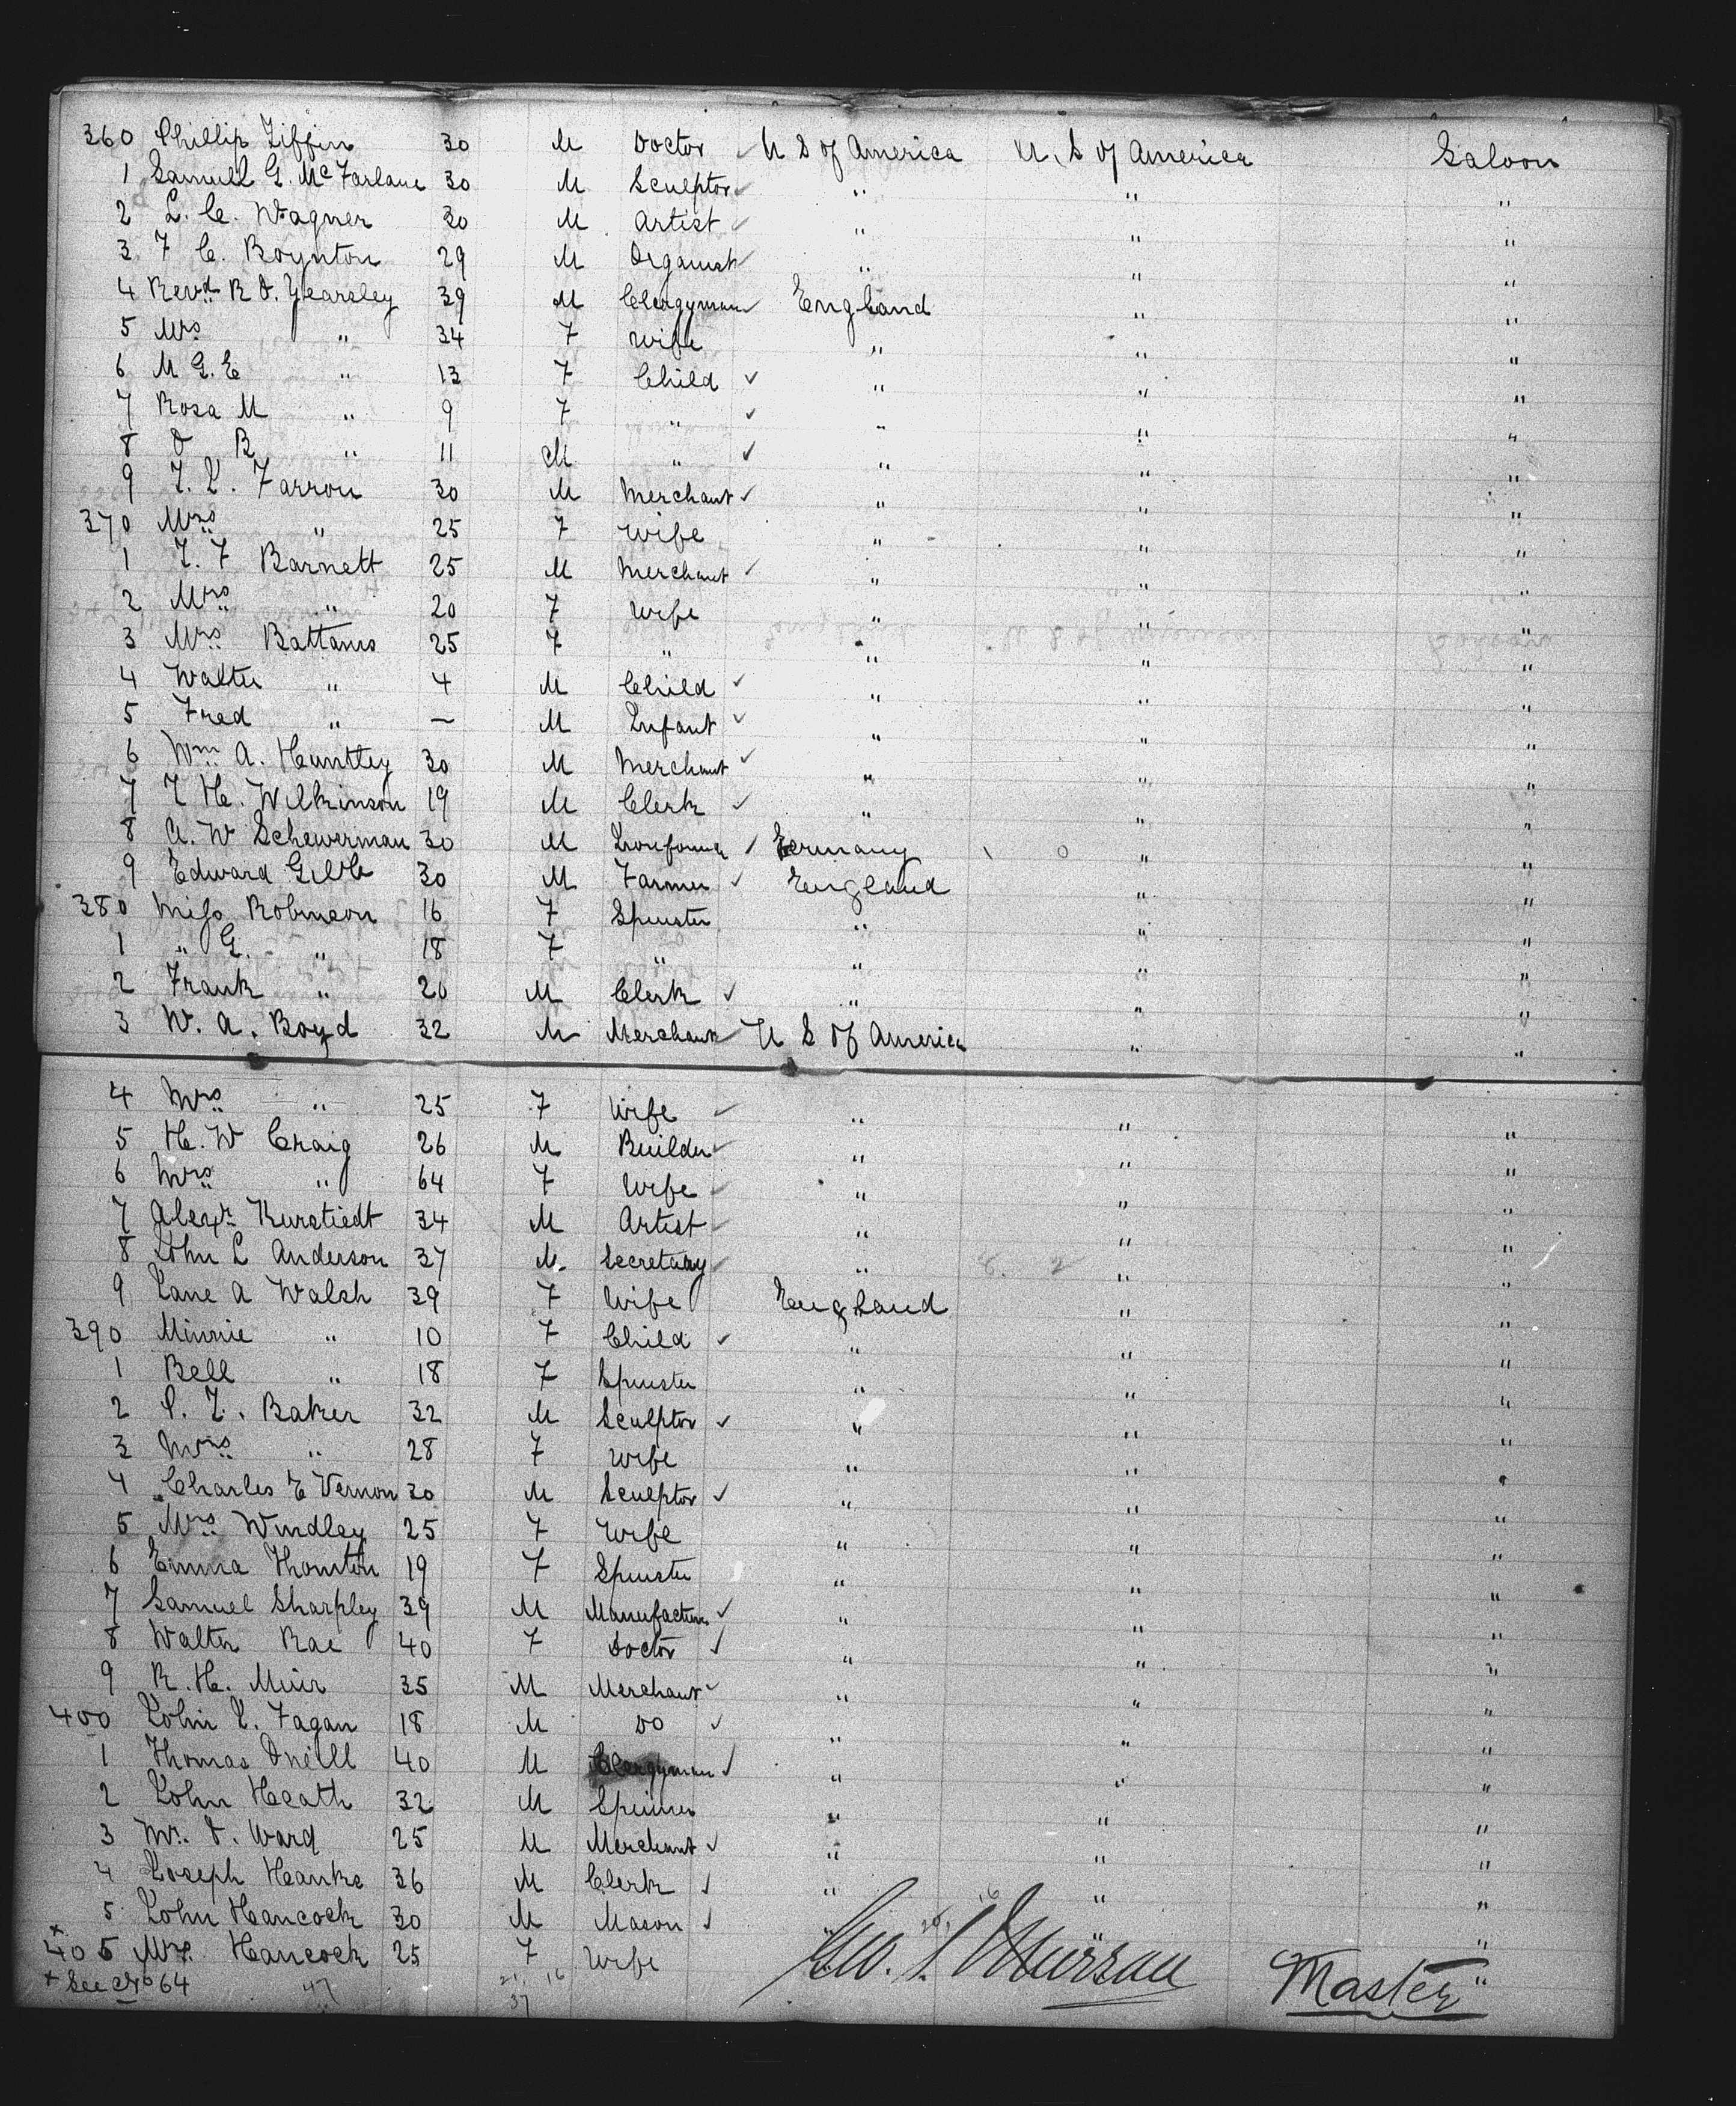 360 Phillip Tiffin 30 M Doctor ✓ U S of America U. S of America Saloon
1 Samuel G. McFarlane 30 M Sculptor ✓ " " "
2 L. C. Wagner 30 M Artist ✓ " " "
3 F C. Boynton 29 M Organist ✓ " " "
4 Revd R O. Yearsley 39 M Clergyman ✓ England " "
5 Mrs " 34 F Wife " " "
6 M G. E " 13 F Child ✓ " " "
7 Rosa M " 9 F " ✓ " " "
8 O R " 11 M " ✓ " " "
9 J. L. Farron 30 M Merchant ✓ " " "
370 Mrs " 25 F Wife " " "
1 J. F Barnett 25 M Merchant ✓ " " "
2 Mrs " 20 F Wife " " "
3 Mrs Battams 25 F " " " "
4 Walter " 4 M Child ✓ " " "
5 Fred " — M Infant ✓ " " "
6 Wm A. Huntley 30 M Merchant ✓ " " "
7 J H. Wilkinson 19 M Clerk ✓ " " "
8 A. W Schewerman 30 M ✓ Germany " "
9 Edward Gibb 30 M Farmer ✓ England " "
380 Miss Robinson 16 F Spinster " " "
1 " G. " 18 F " " " "
2 Frank " 20 M Clerk ✓ " " "
3 W. A. Boyd 32 M Merchant ✓ U S of America " "
4 Mrs " 25 F Wife ✓ " " "
5 H. W Craig 26 M Builder ✓ " " "
6 Mrs " 64 F Wife ✓ " " "
7 Alexr Kurstiedt 34 M Artist ✓ " " "
8 John L Anderson 37 M. Secretary ✓ " " "
9 Jane A Walsh 39 F Wife England " "
390 Minnie " 10 F Child ✓ " " "
1 Bell " 18 F Spinster " " "
2 P. J. Baker 32 M Sculptor ✓ " " "
3 Mrs " 28 F Wife " " "
4 Charles E Vernon 30 M Sculptor ✓ " " "
5 Mrs Windley 25 F Wife " " "
6 Emma Thornton 19 F Spinster " " "
7 Samuel Sharpley 39 M Manufacturer ✓ " " "
8 Walter Rae 40 F Doctor ✓ " " "
9 R. H. Muir 35 M Merchant ✓ " " "
400 John J. Fagan 18 M Do ✓ " " "
1 Thomas Oneill 40 M Clergyman ✓ " " "
2 John Heath 32 M Spinner " " "
3 Mr. O. Ward 25 M Merchant ✓ " " "
4 Joseph Hanks 36 M Clerk ✓ " " "
5 John Hancock 30 M Mason ✓ " "
x 405 Mrs. Hancock 25 F Wife "
x See No 64 Geo. S. Murray Master
47 37